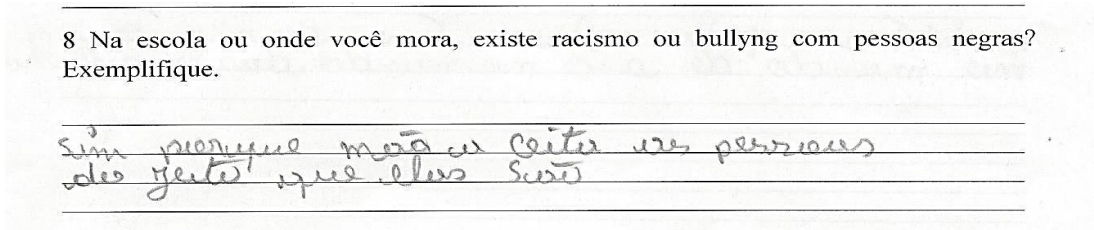 8 Na escola ou onde você mora, existe racismo ou bullyng com pessoas negras?
Exemplifique.
sim porque não a ceita as pessoas
do jeito que elas são